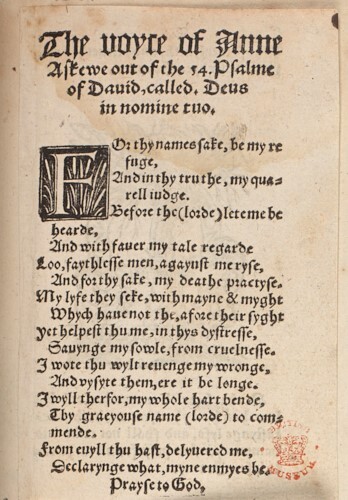 The voyce of Anne
Askewe out of the 54. Psalme
of Dauid, called. Deus
in nomine tuo.
FOr thy names sake, be my re
fuge,
And in thy truthe, my qua-
rell iudge.
Before the (lorde) lete me be
hearde,
And with fauer my tale regarde
Loo, faythlesse men, agaynst me ryse,
And for thy sake, my deathe practyse.
My lyfe they seke, with mayne & myght
Whych haue not the, afore their syght
Yet helpest thu me, in thys dystresse,
Sauynge my sowle, from cruelnesse.
I wote thu wylt reuenge my wronge,
And vysyte them, ere it be longe.
I wyll therfor, my whole hart bende,
Thy graeyouse name (lorde) to com-
mende.
From euyll thu hast, delyuered me,
Declarynge what, myne enmyes be.
Prayse to God.